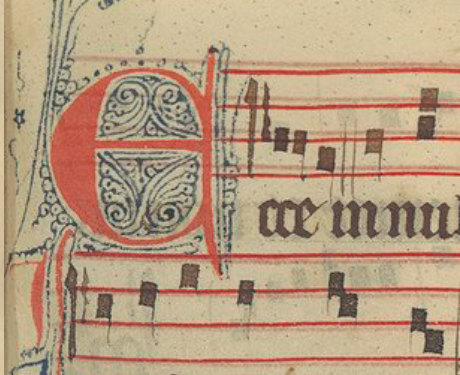 Ecce in nu